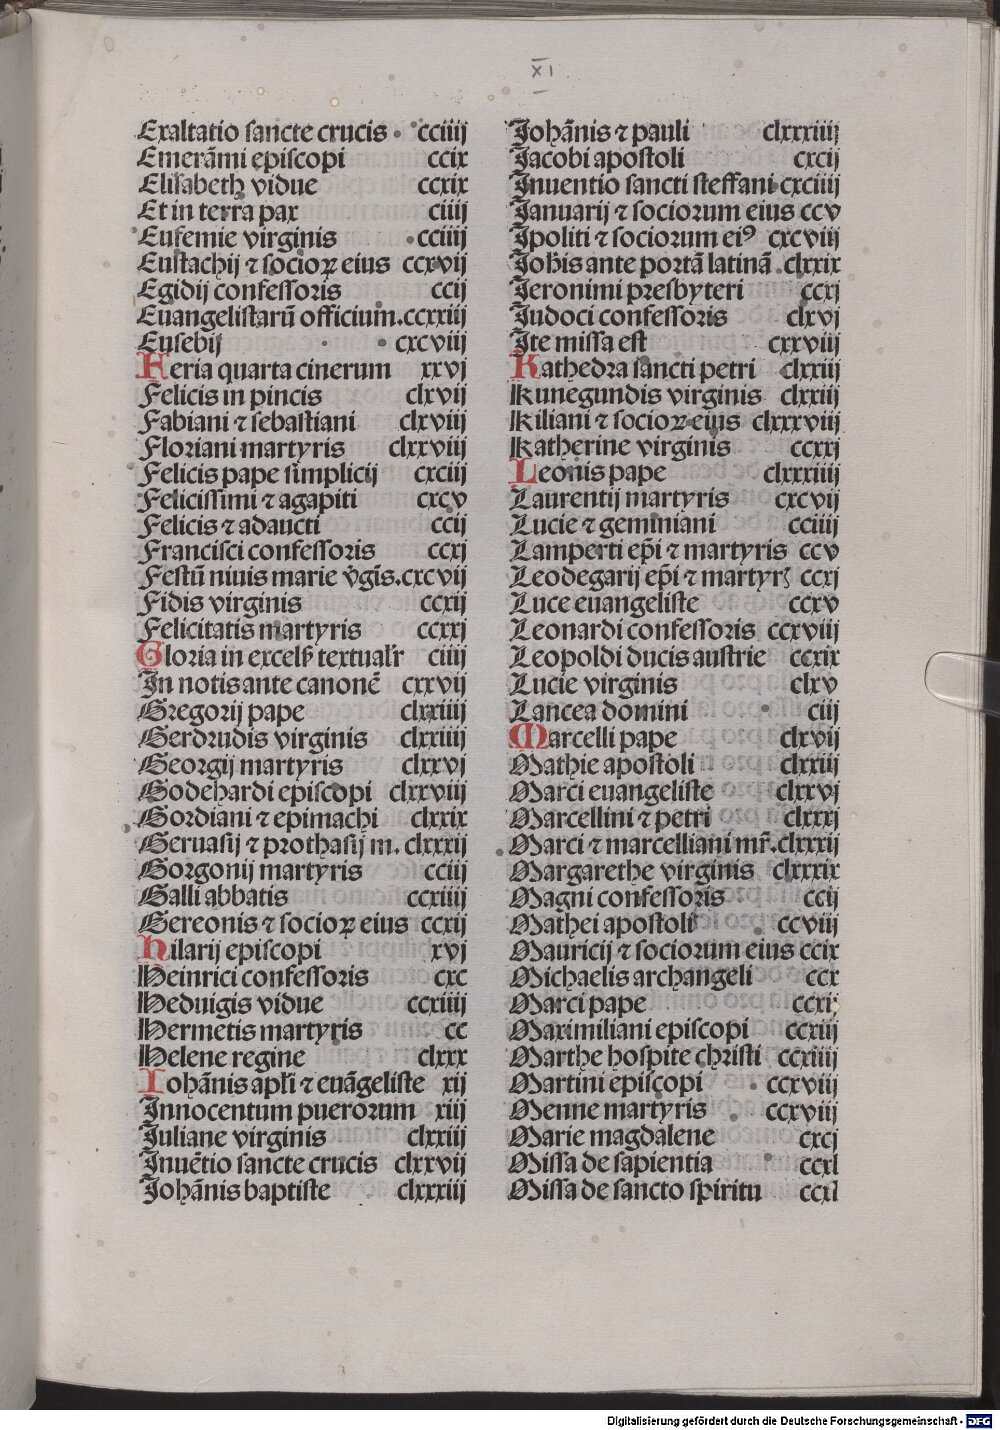 XI
Exaltatio sancte crucis . cciiij
Emerāmi episcopi ccix
Elisabeth vidue ccxix
Et in terra pax ciiij
Eufemie virginis .cciiij
Eustachij ⁊ socioꝝ eius ccxvij
Egidij confessoris ccij
Euangelistarū officium.ccxxiij
Eusebij cxcviij
Feria quarta cinerum xxvj
Felicis in pincis clxvij
Fabiani ⁊ sebastiani clxviij
Floriani martyris clxxviij
Felicis pape simplicij cxciij
Felicissimi ⁊ agapiti cxcv
Felicis ⁊ adaucti ccij
Francisci confessoris ccxj
Festū niuis marie v̄gīs.cxcvij
Fidis virginis ccxij
Felicitatis martyris ccxxj
Gloria in excelß textual'r ciiij
In notis ante canonē cxxvij
Gregorij pape clxxiiij
Gerdrudis virginis clxxiiij
Georgij martyris clxxvj
Godehardi episcopi clxxviij
Gordiani ⁊ epimachi clxxix
Geruasij ⁊ prothasij m. clxxxij
Gorgonij martyris cciij
Galli abbatis ccxiiij
Gereonis ⁊ socioꝝ eius ccxij
Hilarij episcopi xvj
Heinrici confessoris cxc
Heduigis vidue ccxiiij
Hermetis martyris cc
Helene regine clxxx
Iohānis apl̄i ⁊ euāgeliste xij
Innocentum puerorum xiij
Juliane virginis clxxiij
Inuētio sancte crucis clxxvij
Johānis baptiste clxxxiij
Johānis ⁊ pauli clxxxiiij
Jacobi apostoli cxcij
Inuentio sancti steffani cxciiij
Januarij ⁊ sociorum eius ccv
Ipoliti ⁊ sociorum eiꝰ cxcviij
Joh̄is ante portā latinā .clxxix
Jeronimi presbyteri ccxj
Judoci confessoris clxvj
Ite missa est cxxviij
Kathedra sancti petri clxxiij
Kunegundis virginis clxxiij
Kiliani ⁊ socioꝝ eius clxxxviij
Katherine virginis ccxxj
Leonis pape clxxxiiij
Laurentij martyris cxcvij
Lucie ⁊ geminiani cciiij
Lamperti ep̄i ⁊ martyris ccv
Leodegarij ep̄i ⁊ martyrꝫ ccxj
Luce euangeliste ccxv
Leonardi confessoris ccxviij
Leopoldi ducis austrie ccxix
Lucie virginis clxv
Lancea domini ciij
Marcelli pape clxvij
Mathie apostoli clxxiij
Marci euangeliste clxxvj
Marcellini ⁊ petri clxxxj
Marci ⁊ marcelliani mr̄.clxxxij
Margarethe virginis clxxxix
Magni confessoris ccij
Mathei apostoli ccviij
Mauricij ⁊ sociorum eius ccix
Michaelis archangeli ccx
Marci pape ccxj
Maximiliani episcopi ccxiij
Marthe hospite christi ccxiiij
Martini episcopi ccxviij
Menne martyris ccxviij
Marie magdalene cxcj
Missa de sapientia ccxl
Missa de sancto spiritu ccxl
Digitalisierung gefördert durch die Deutsche Forschungsgemeinschaft - DFG